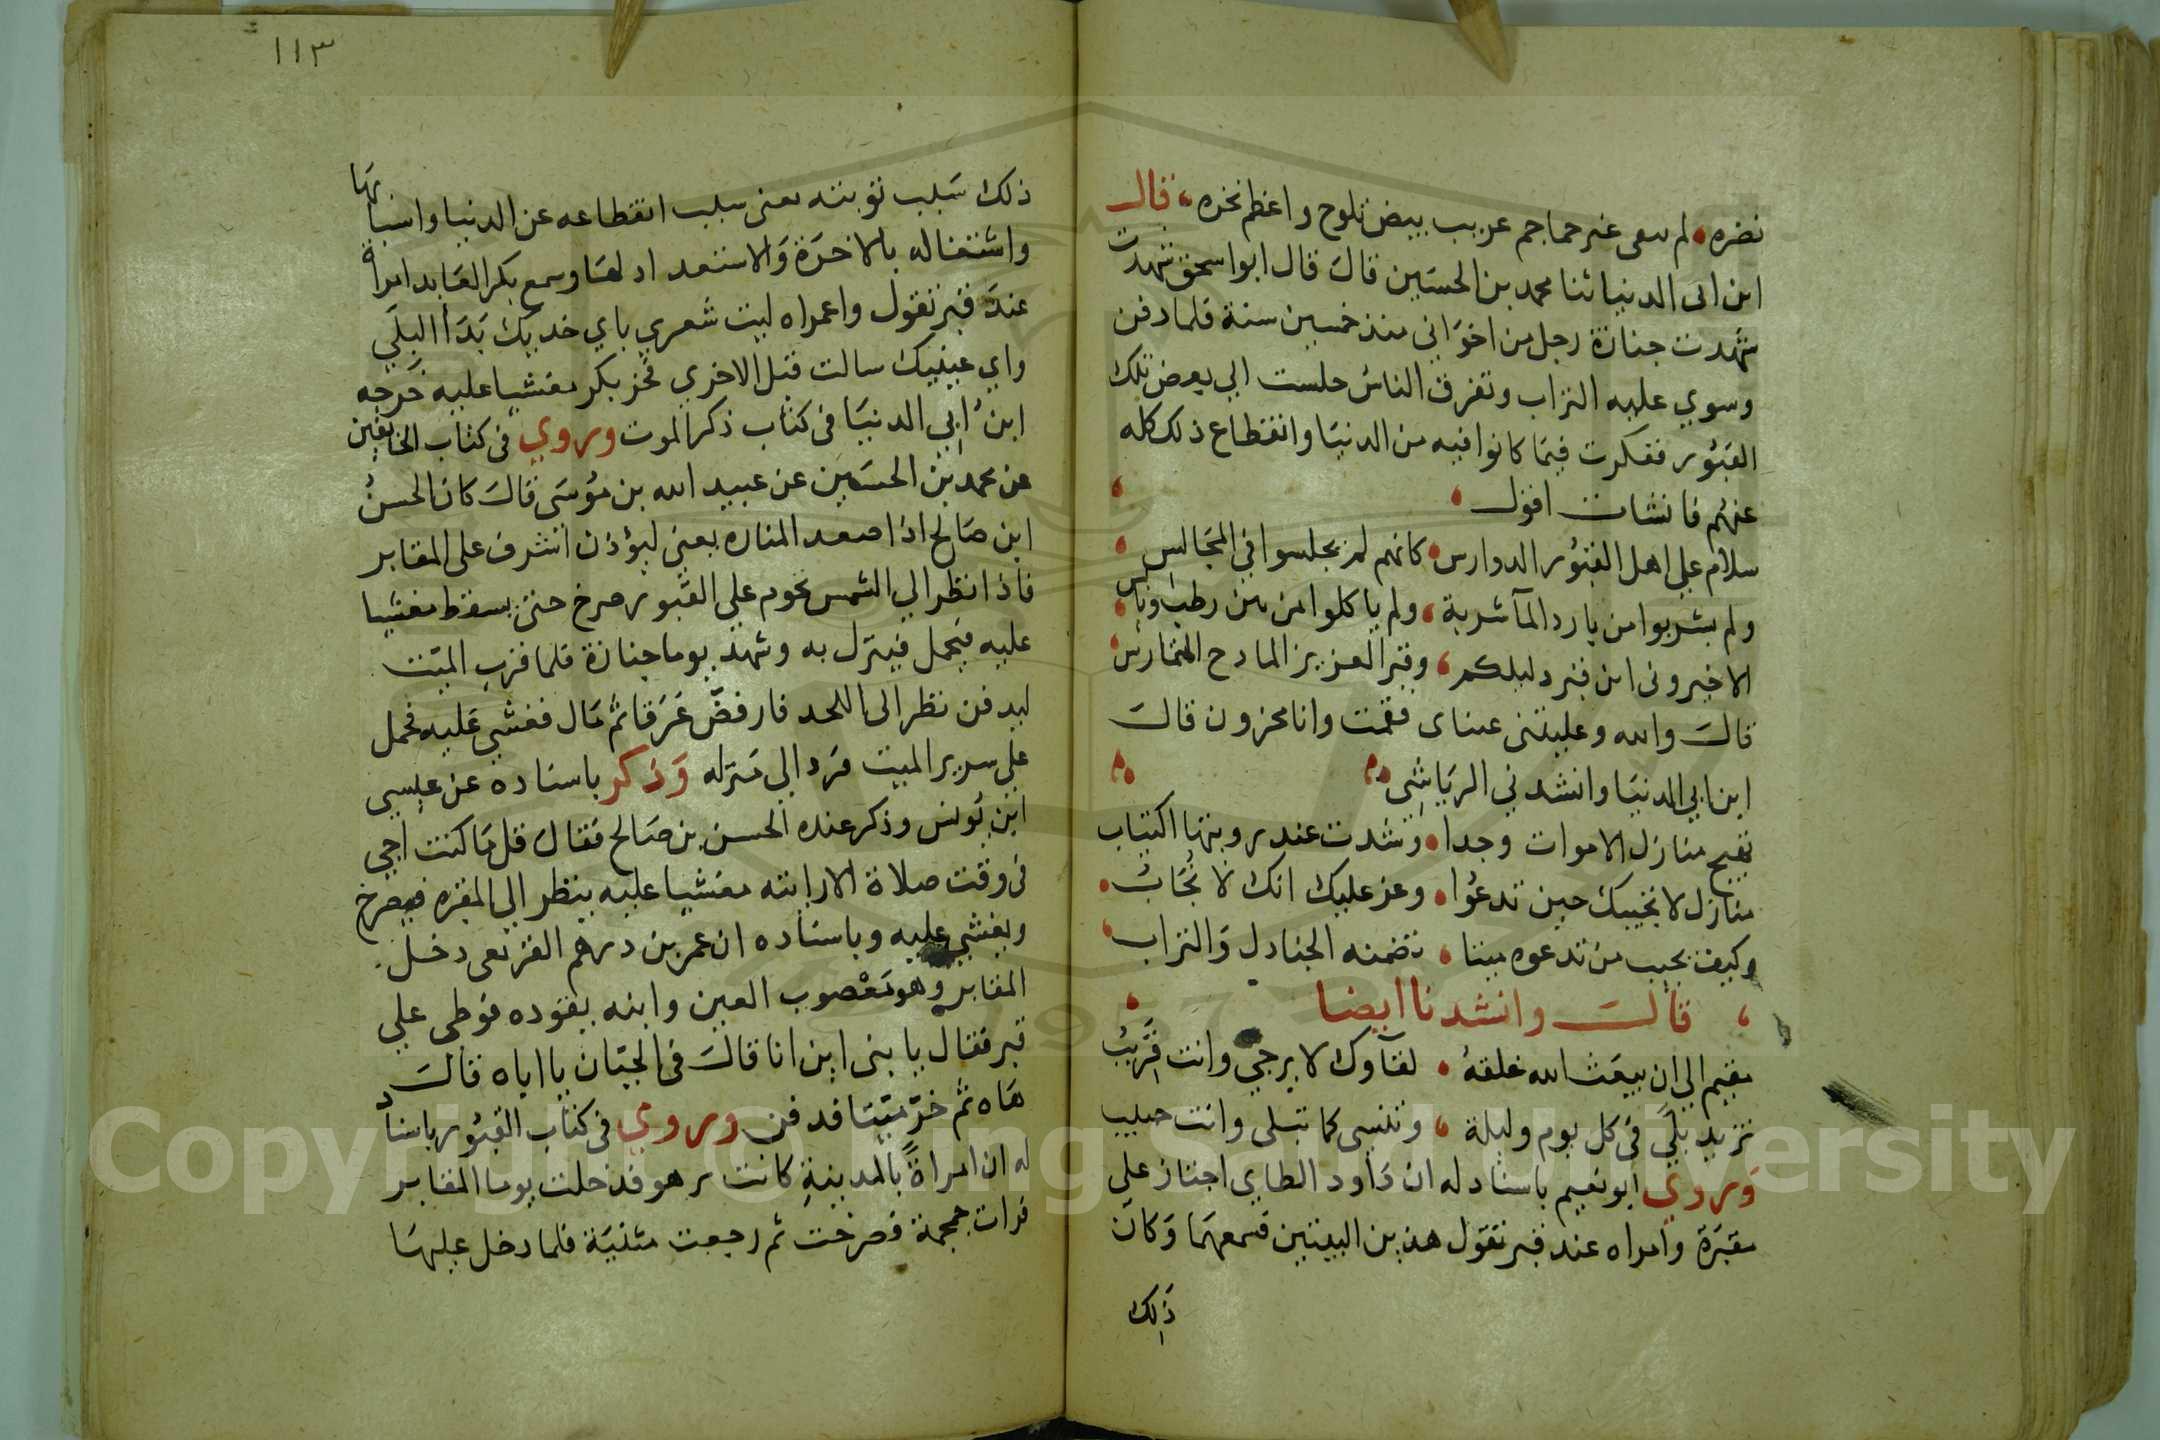 نضره • لم سعى غير حماجم عريب بيض تلوح واعظم نخره ، قال
ابن ابى الدنيا ثنا محمد بن الحسين قال قال ابواسحق شهدت
شهدت جنازة رجل من اخواني منذ خمسين سنة فلما دفن
وسوي عليه التراب وتفرق الناس جلست الي بعض تلك
القبور ففكرت فيما كانوا فيه من الدنيا وانقطاع ذلك كله
عنهم فانشات اقول
سلام علي اهل القبور الدوارس • كانهم لم يجلسوا في المجالس
ولم يشربوا من بارد المآ شربة ، ولم ياكلوا من بين رطب ويابس
الا خبرونى اين قبر دليلكم ، وقبر العزيز المادح المتمارس
قال والله وغلبتنى عيناى فقمت وانا محزون قال
ابن ابي الدنيا وانشدني الرياشى
تهيج منازل الاموات وجدا • وتشدت عند رويتها اكتياب
منازل لا تجيبك حين تدعوا • وعز عليك انك لا تجاب
وكيف يجيب من تدعوه ميتا • تضمنه الجنادل والتراب
، قال وانشدنا ايضا
مقيم الي ان يبعث الله خلقه • لقآوك لا يرجي وانت قريب
تزيد بلي في كل يوم وليلة ، وتنسى كما تبلى وانت حبيب
وروي ابو نعيم باسناد له ان داود الطاى اجتاز علي
مقبرة وامراه عند قبر تقول هذين البيتين فسمعهما وكان
ذلك
١١٣
ذلك سبب توبته يعنى سبب انقطاعه عن الدنيا واسبابها
واشتغاله بالاخرة والاستعداد لها وسمع بكر العابد امراة
عند قبر تقول واعمراه ليت شعري باي خديك بدا البلي
واي عينيك سالت قبل الاخري فخر بكر مغشيا عليه خرجه
ابن ابي الدنيا فى كتاب ذكر الموت وروي فى كتاب الخايفين
عن محمد بن الحسين عن عبيد الله بن موسى قال كان الحسن
ابن صالح اذا صعد المناره يعنى ليؤذن اشرف على المقابر
فاذا نظر الي الشمس تحوم علي القبور صرخ حتى يسقط مغشيا
عليه فيحمل فينزل به وشهد يوما جنازة فلما قرب الميت
ليدفن نظر الى اللحد فارفض عرقا ثم مال فغشي عليه فحمل
على سرير الميت فرد الي منزله وذكر باسناده عن عيسى
ابن يونس وذكر عنده الحسن بن صالح فقال قل ما كنت اجي
فى وقت صلاة الا رايته مغشيا عليه ينظر الي المقبره فيصرخ
ويغشي عليه وباسناده ان عمر بن درهم القزيعى دخل
المقابر وهو معصوب العين وابنه يقوده فوطى علي
قبر فقال يا بنى اين انا قال فى الجبان يا اياه قال
هاه ثم خر ميتا فدفن وروي فى كتاب القبور باسناد
له ان امراة بالمدينة كانت ترهو فدخلت يوما المقابر
فرات جمجمة فصرخت ثم رجعت منيبة فلما دخل عليها